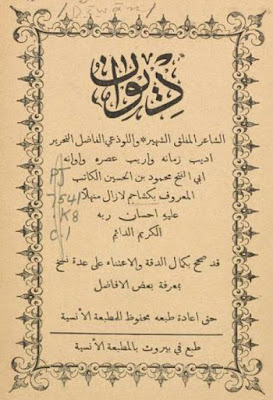 Dīwān
ديوان
الشاعر المفلق الشهير واللوذعي الفاضل النحرير
اديب زمانه واريب عصره واوانه
ابي الفتح محمود بن الحسين الكاتب
المعروف بكشاجم لازال منهلا
عليه احسان ربه
الكريم الدائم
PJ
7541
.K8
c.1
قد صحح بكمال الدقة والاعتناء على عدة نسخ
بمعرفة بعض الافاضل
حق اعادة طبعه محفوظ للمطبعة الانسية
طبع في بيروت بالمطبعة الانسية